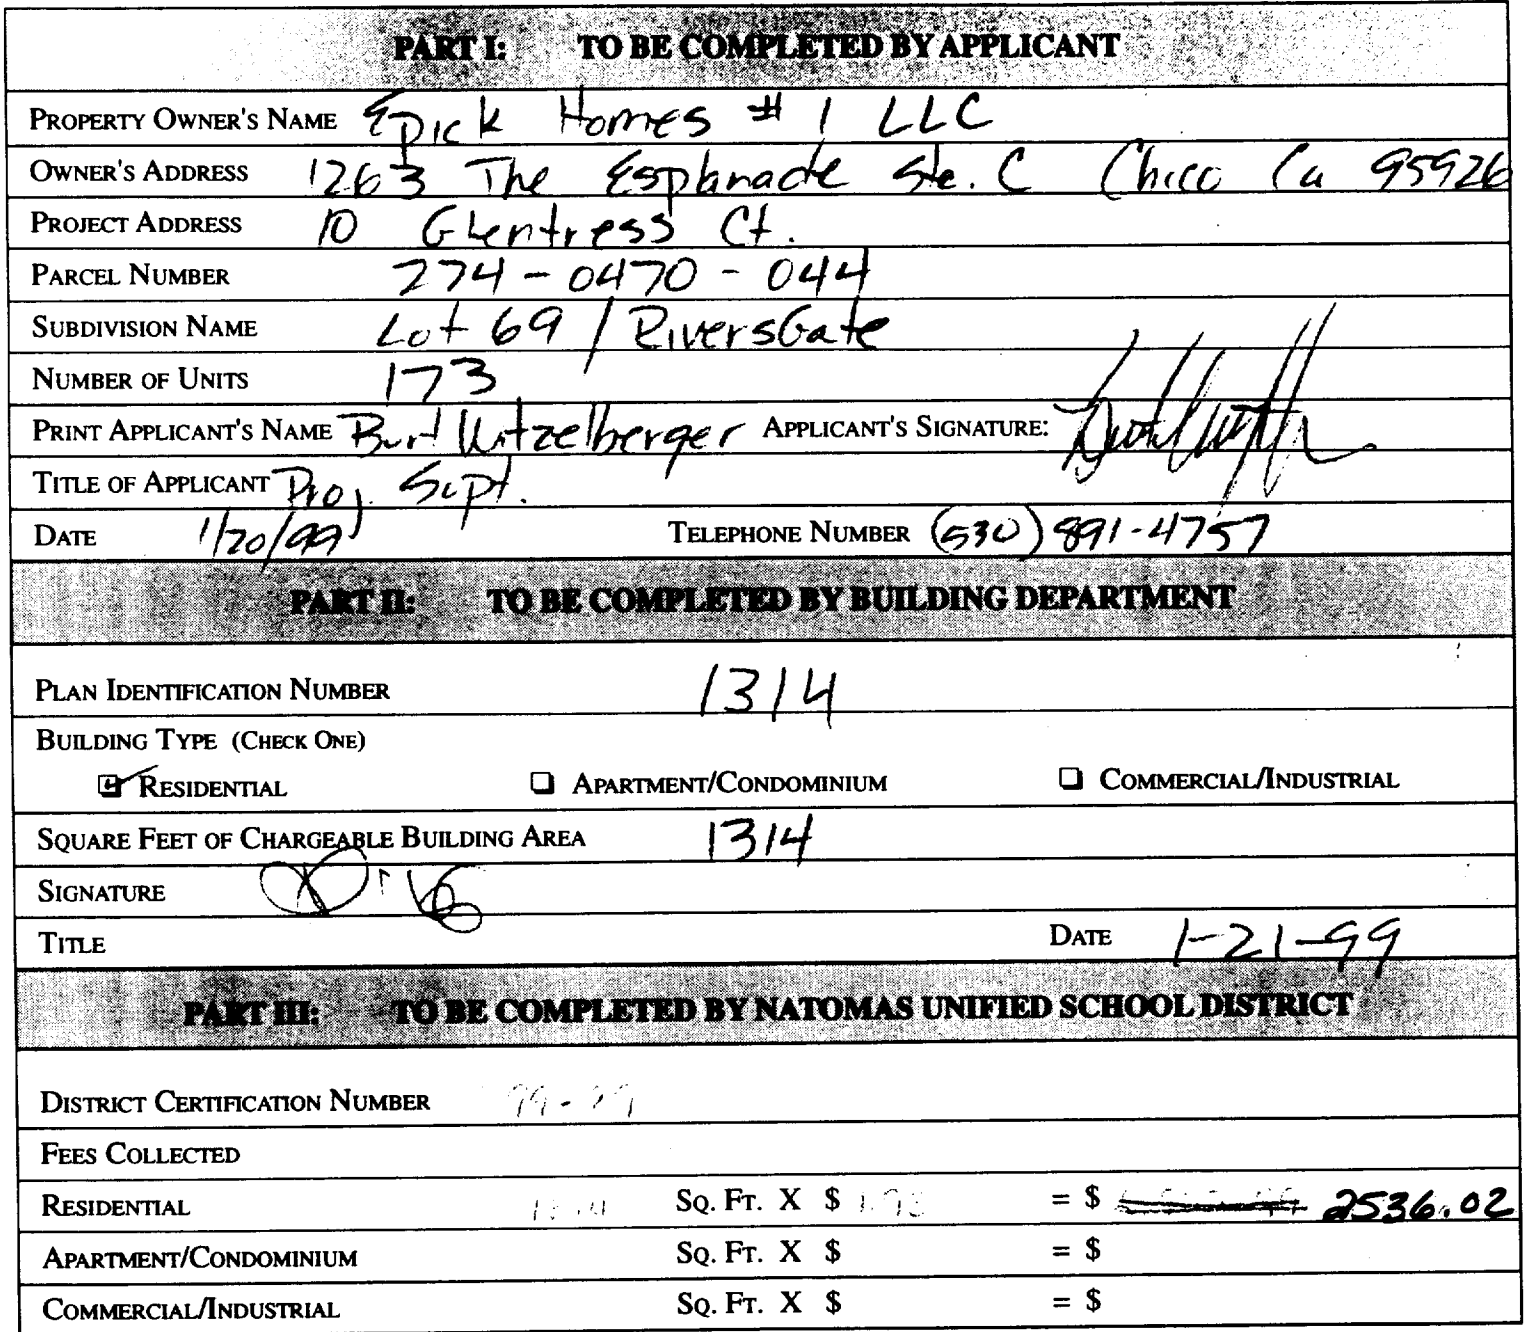 PART I: TO BE COMPLETED BY APPLICANT
PROPERTY OWNER'S NAME Epick Homes #1 LLC
OWNER'S ADDRESS 1263 The Esplanade Ste. C Chico Ca 95926
PROJECT ADDRESS 10 Glentress Ct.
PARCEL NUMBER 274-0470-044
SUBDIVISION NAME Lot 69 / RiversGate
NUMBER OF UNITS 173
PRINT APPLICANT'S NAME Burt Witzelberger APPLICANT'S SIGNATURE:
TITLE OF APPLICANT Proj. Supt.
DATE 1/20/99 TELEPHONE NUMBER (530) 891-4757
PART II: TO BE COMPLETED BY BUILDING DEPARTMENT
PLAN IDENTIFICATION NUMBER 1314
BUILDING TYPE (CHECK ONE)
RESIDENTIAL APARTMENT/CONDOMINIUM COMMERCIAL/INDUSTRIAL
SQUARE FEET OF CHARGEABLE BUILDING AREA 1314
SIGNATURE
TITLE DATE 1-21-99
PART III: TO BE COMPLETED BY NATOMAS UNIFIED SCHOOL DISTRICT
DISTRICT CERTIFICATION NUMBER
FEES COLLECTED
RESIDENTIAL 1314 SQ. FT. X $ 1.93 = $ 2536.02
APARTMENT/CONDOMINIUM SQ. FT. X $ = $
COMMERCIAL/INDUSTRIAL SQ. FT. X $ = $